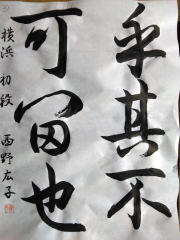 乎其不
可留也
横浜 初段 西野広子